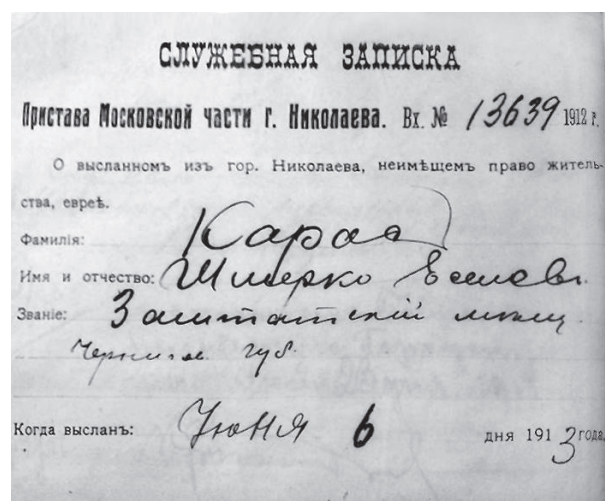 СЛУЖЕБНАЯ ЗАПИСКА
Пристава Московской части г. Николаева. Вх. № 13639 1912 г.
О высланномъ изъ гор. Николаева, неимѣщемъ право житель-
ства, евреѣ.
Фамилія:
Имя и отчество: Шмерко
Званіе: Заштатскій мѣщ.
Чернигов. губ.
Когда высланъ: Июня 6 дня 1913 года.